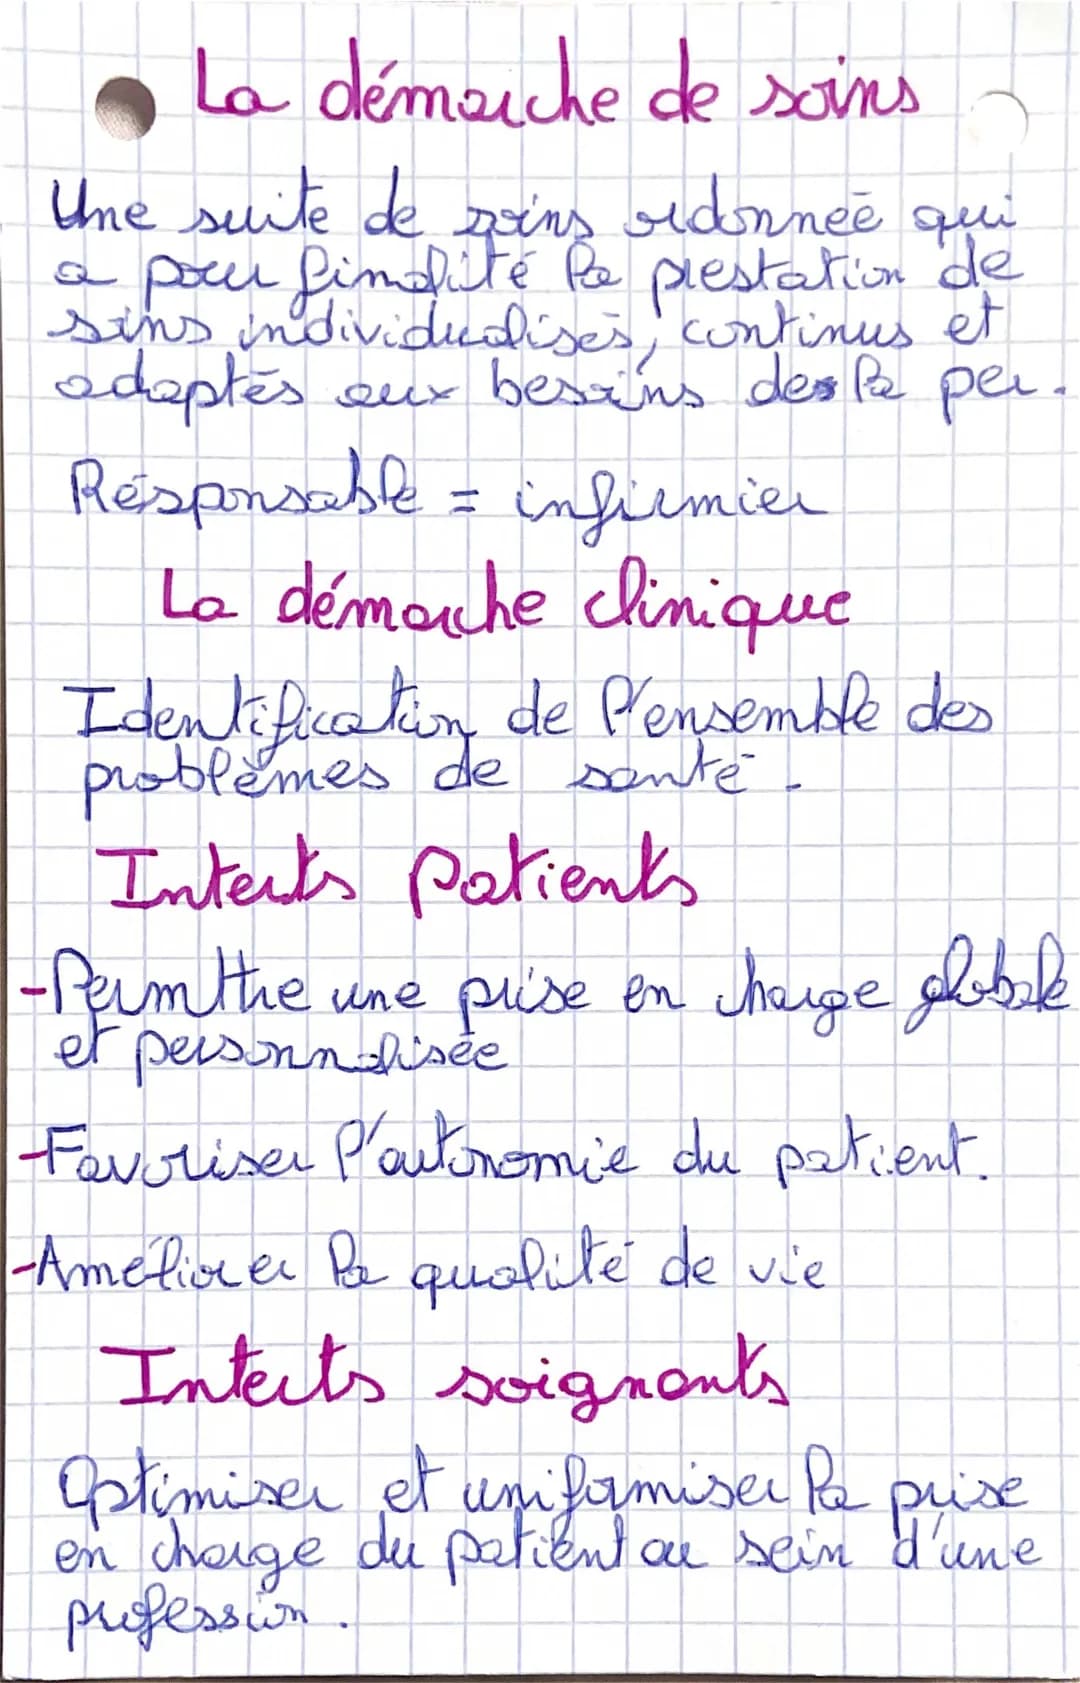 La démarche de soins
Une suite de soins ordonneé qui
a pour finalité la prestation de
soins individualisés, continus et
adaptés aux besoins des la per.
Résponsable = infirmier
La démarche clinique
Identification de l'ensemble des
problèmes de santé.
Interts Patients
-Permttre une prise en charge globale
et personnalisée
-Favoriser l'autonomie du patient.
-Améliorer la qualité de vie
Interts soignants
Optimiser et uniformiser la prise
en charge du patient au sein d'une
profession.